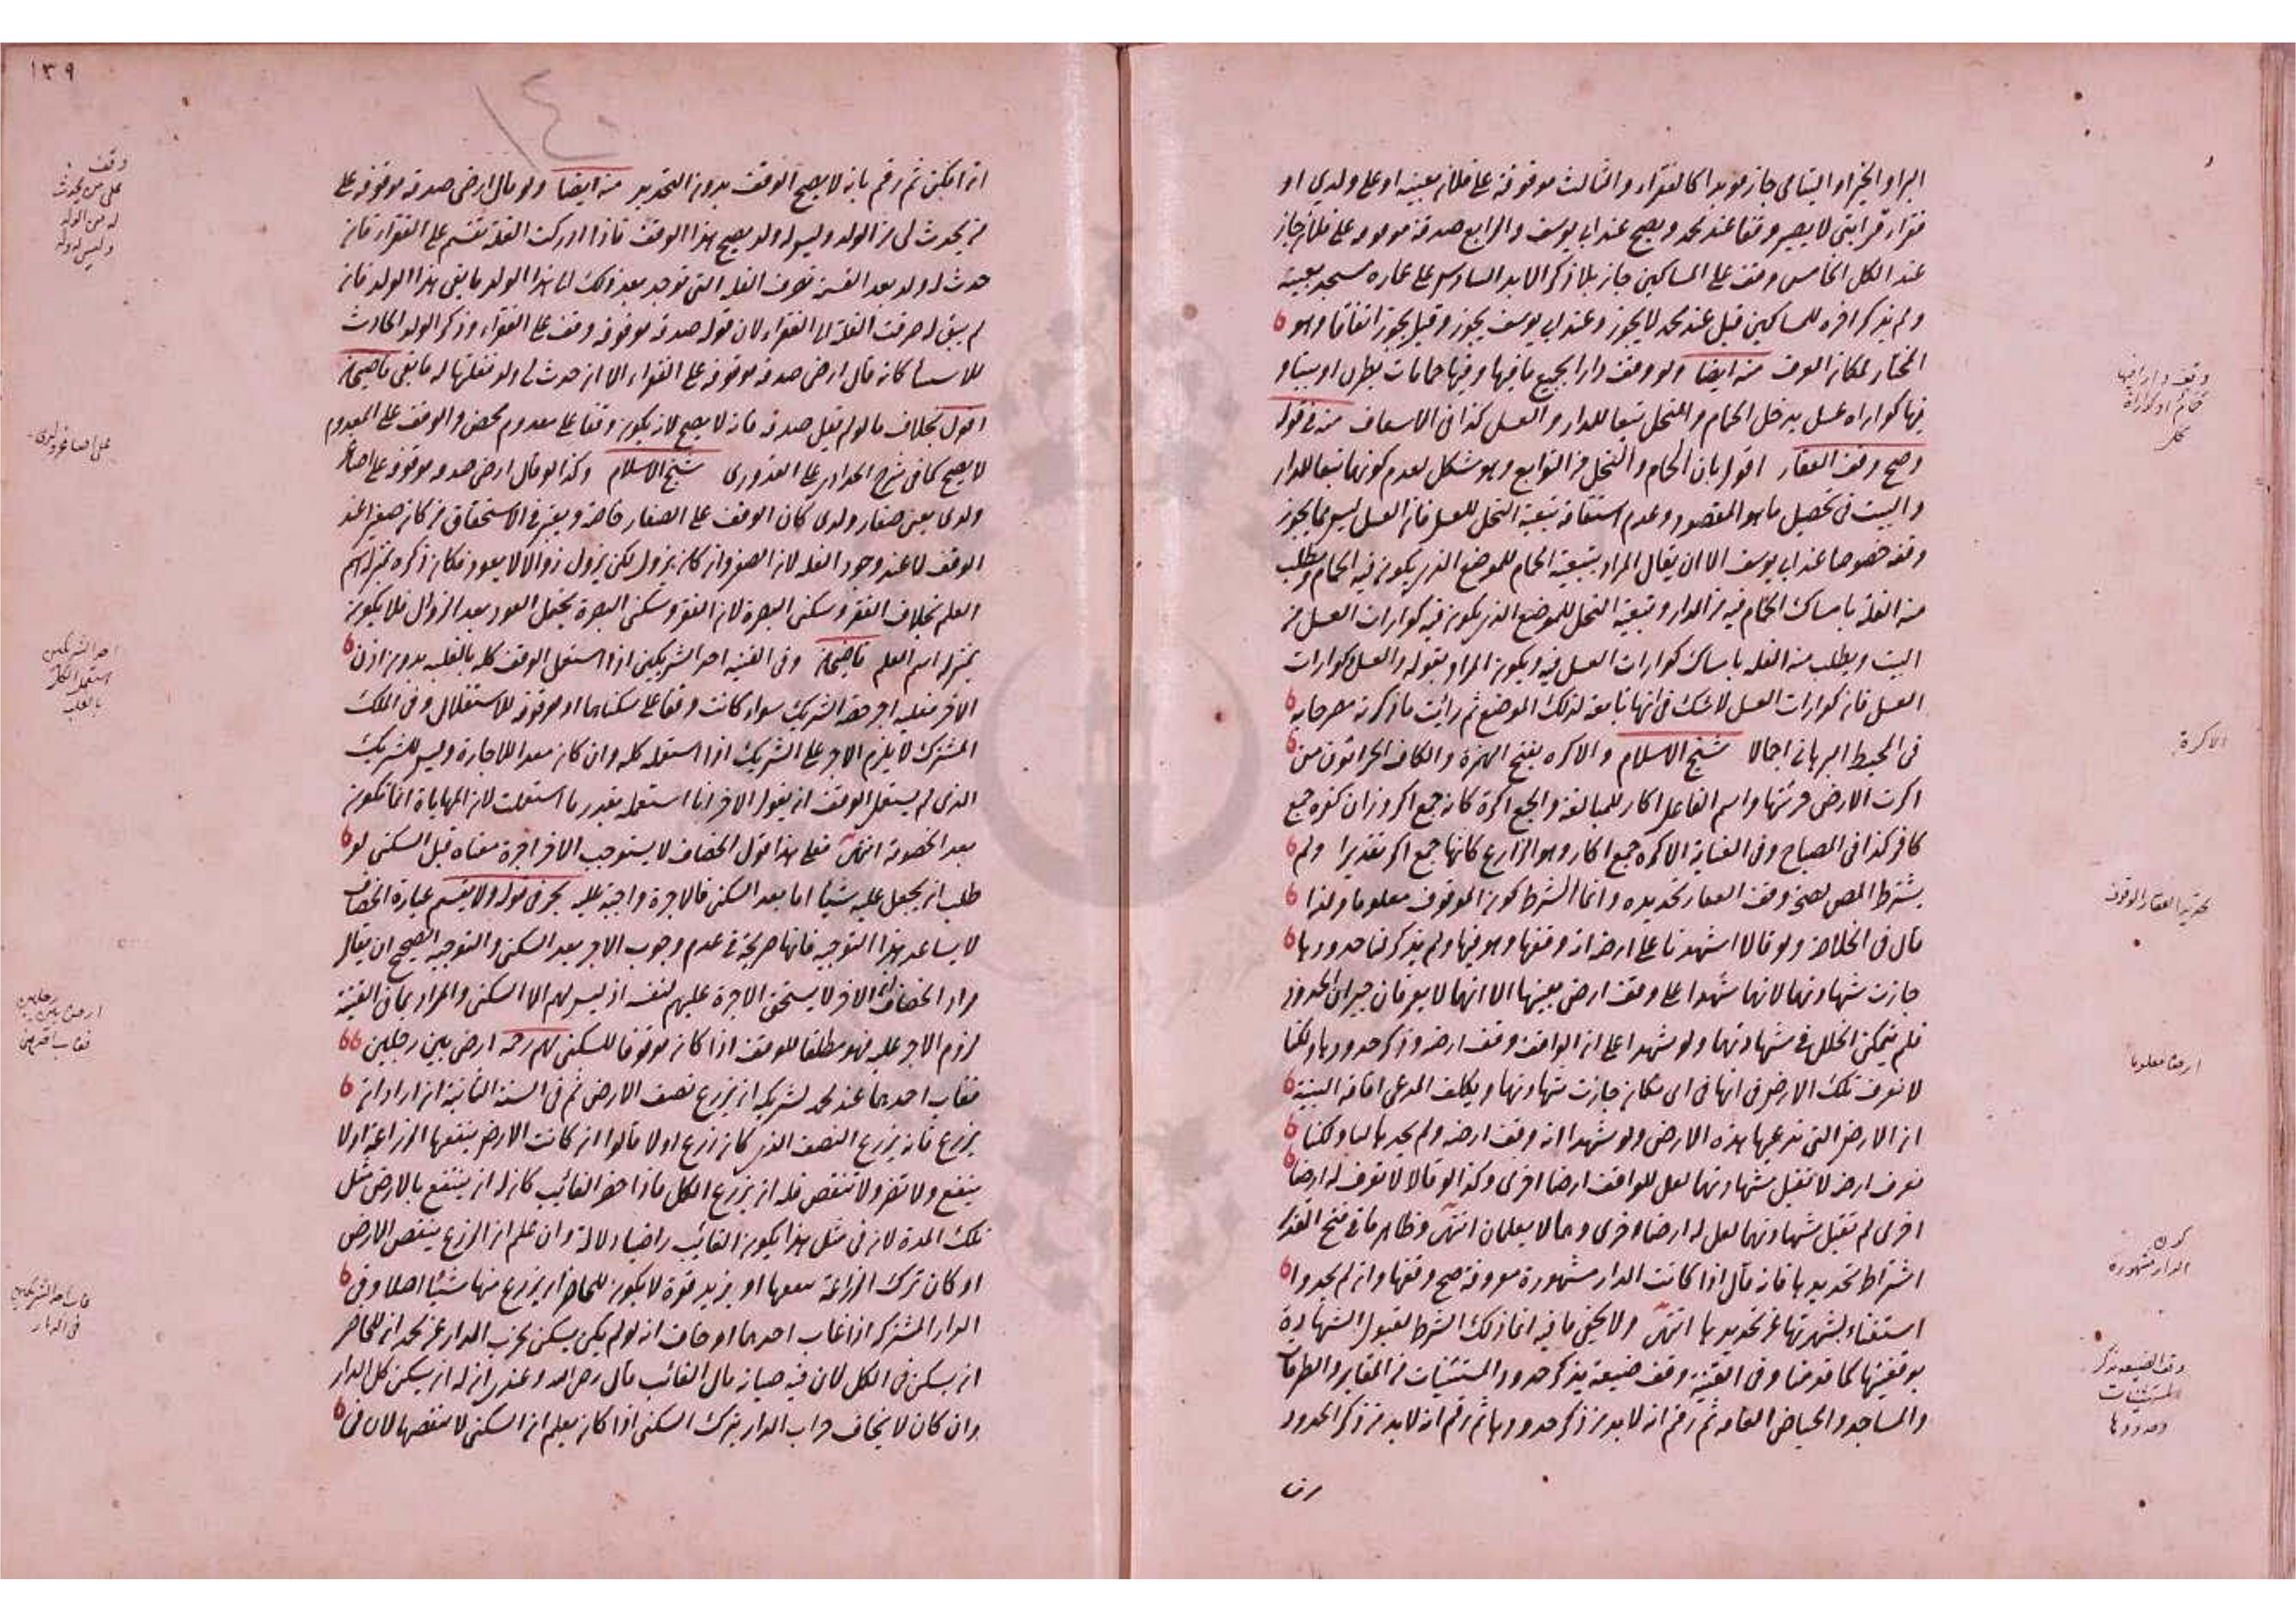 البر او الخير او اليتامى جاز مؤبدا كالفقراء والثالث موقوفة على فلان بعينه او على ولدي او
فقراء قرابتي لا يصير وقفا عند محمد ويصح عند ابي يوسف والرابع صدقة موقوفة على فلان جاز
عند الكل الخامس وقف على المساكين جاز بلا ذكر الابد السادس على عمارة مسجد بعينه
ولم يذكر اخره للمساكين قيل عند محمد لا يجوز وعند ابي يوسف يجوز وقيل يجوز اتفاقا وهو
المختار لمكان العرف منه ايضا ولو وقف دارا بجميع ما فيها وفيها حمامات يطرن او بيتا و
فيها كوارات عسل يدخل الحمام والنحل تبعا للدار والعسل كذا في الاسعاف منه في قوله
وصح وقف العقار اقول بان الحمام والنحل من التوابع وهو مشكل لعدم كونهما تبعا للدار
والبيت في تحصيل ما هو المقصود وعدم استقامة تبعية النحل للعسل فان العسل ليس مما يجوز
وقفه خصوصا عند ابي يوسف الا ان يقال المراد بتبعية الحمام للموضع الذي يكون فيه الحمام ويطلب
منه الغلة بامساك الحمام فيه من الدار وتبعية النحل للموضع الذي يكون فيه كوارات العسل من
البيت ويطلب منه الغلة بامساك كوارات العسل فيه ويكون المراد بقوله والعسل كوارات
العسل فان كوارات العسل لا شك في انها تابعة لذلك الموضع ثم رايت ما ذكرته مصرحا به
في المحيط البرهاني اجمالا شيخ الاسلام والاكرة بفتح الهمزة والكاف الحراثون من
اكرت الارض حرثتها واسم الفاعل اكار للمبالغة والجمع اكرة كانه جمع اكر وزان كفرة جمع
كافر كذا في المصباح وفي الغاية الاكرة جمع اكار وهو الزارع كانها جمع اكر تقديرا ولم
يشترط المص لصحة وقف العقار تحديده وانما الشرط كون الموقوف معلوما ولذا
قال في الخلاصة ولو قالا اشهدنا على ارضه انه وقفها وهو فيها ولم يذكر لنا حدودها
جازت شهادتهما لانهما شهدا على وقف ارض بعينها الا انهما لا يعرفان جيران الحدود
فلم يتمكن الخلل في شهادتهما ولو شهدا على ان الواقف وقف ارضه وذكر حدودها ولكنا
لا نعرف تلك الارض في انها في اي مكان جازت شهادتهما ويكلف المدعي اقامة البينة
ان الارض التي يدعيها هذه الارض ولو شهدا انه وقف ارضه ولم يحدها لنا ولكنا
نعرف ارضه لا تقبل شهادتهما لعل للواقف ارضا اخرى وكذا لو قالا لا نعرف له ارضا
اخرى لم تقبل شهادتهما لعل له ارضا اخرى وهما لا يعلمان انتهى وظاهر ما في فتح القدير
اشتراط تحديدها فانه قال اذا كانت الدار مشهورة معروفة صح وقفها وان لم يحدوا
استغناء بشهرتها عن تحديدها انتهى ولا يخفى ما فيه انما ذلك الشرط لقبول الشهادة
بوقفيتها كما قدمنا وفي القنية وقف ضيعة يذكر حدود المستثنيات من المقابر والطرقات
والمساجد والحياض العامة ثم رقم انه لا بد من ذكر حدودها ثم رقم انه لا بد من ذكر الحدود
وقف دارا فيها
الاكرة
تحديد العقار الموقوف
ارضا معلوما
الدار مشهورة
وقف الضيعة يذكر
المستثنيات
وحدودها
١٣٩
١٤٠
ان امكن ثم رقم بانه لا يصح الوقف بدون التحديد منه ايضا ولو قال ارضى صدقة موقوفة على
من يحدث لي من الولد وليس له ولد يصح هذا الوقف فاذا ادركت الغلة تقسم على الفقراء فان
حدث له ولد بعد القسمة تصرف الغلة التي توجد بعد ذلك الى هذا الولد ما بقي هذا الولد فان
لم يبق له صرفت الغلة الى الفقراء لان قوله صدقة موقوفة وقف على الفقراء وذكر الولد الحادث
للاستثناء كانه قال ارضى صدقة موقوفة على الفقراء الا ان حدث لي ولد فغلتها له ما بقي قاضيخان
اقول بخلاف ما لو لم يقل صدقة فانه لا يصح لانه يكون وقفا على معدوم محض والوقف على المعدوم
لا يصح كما في شرح الحدادي على القدوري شيخ الاسلام وكذا لو قال ارضى صدقة موقوفة على اصاغر
ولدي يعني صغار ولدي كان الوقف على الصغار خاصة ويعتبر في الاستحقاق من كان صغيرا عند
الوقف لا عند وجود الغلة لان الصغر وان كان يزول لكن يزول زوالا لا يعود فكان ذكره بمنزلة اسم
العلم بخلاف الفقر وسكنى البصرة لان الفقر وسكنى البصرة يحتمل العود بعد الزوال فلا يكون
بمنزلة اسم العلم قاضيخان وفي القنية احد الشريكين اذا استعمل الوقف كله بالغلبة بدون اذن
الاخر فعليه اجر حصة الشريك سواء كانت وقفا على سكناهما او موقوفة للاستغلال وفي الملك
المشترك لا يلزم الاجر على الشريك اذا استعمله كله وان كان معدا للاجارة وليس للشريك
الذي لم يستعمل الوقف ان يقول للاخر انا استعمله بقدر ما استعملت لان المهاياة انما تكون
بعد الخصومة انتهى فعلى هذا قول الخصاف لا يستوجب الاخر اجرة معناه قبل السكنى لو
طلب ان يجعل عليه شيئا اما بعد السكنى فالاجرة واجبة عليه بحر في قوله ولا يقسم عبارة الخصاف
لا يساعد هذا التوجيه فانها صريحة في عدم وجوب الاجر بعد السكنى والتوجيه الصحيح ان يقال
مراد الخصاف ان الاخر لا يستحق الاجرة عليهم لنفسه اذ ليس لهم الا السكنى والمراد بما في القنية
لزوم الاجر عليه فهو مطلقا للوقف اذا كان موقوفا للسكنى لهم رحمه ارض بين رجلين
فغاب احدهما عند محمد لشريكه ان يزرع نصف الارض ثم في السنة الثانية ان اراد ان
يزرع فانه يزرع النصف الذي كان زرع اولا قالوا ان كانت الارض ينفعها الزراعة او لا
ينفع ولا تضر ولا تنقص فله ان يزرع الكل فاذا حضر الغائب كان له ان ينتفع بالارض مثل
تلك المدة لان في مثل هذا يكون الغائب راضيا دلالة وان علم ان الزرع ينقص الارض
او كان ترك الزراعة ينفعها او يزيد قوة لا يكون للحاضر ان يزرع منها شيئا اصلا وفي
الدار المشتركة اذا غاب احدهما او خاف انه لو لم يكن يسكن يخرب الدار عن محمد انه للحاضر
ان يسكن في الكل لان فيه صيانة مال الغائب قال رحمه الله وعندي ان له ان يسكن كل الدار
وان كان لا يخاف خراب الدار بترك السكنى اذا كان يعلم ان السكنى لا ينقصها لان في
وقف
على من يحدث
له من الولد
وليس له ولد
على اصاغر ولدي
احد الشريكين
استعمل الكل
بالغلبة
ارض بين رجلين
فغاب احدهما
غاب احد الشريكين
في الدار